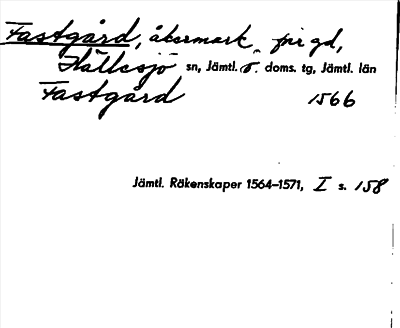 Fastgård, åkermark, fir gd,
Hällesjö sn, Jämtl. ö. doms. tg, Jämtl. län
Fastgård 1566
Jämtl. Räkenskaper 1564–1571, I s. 158